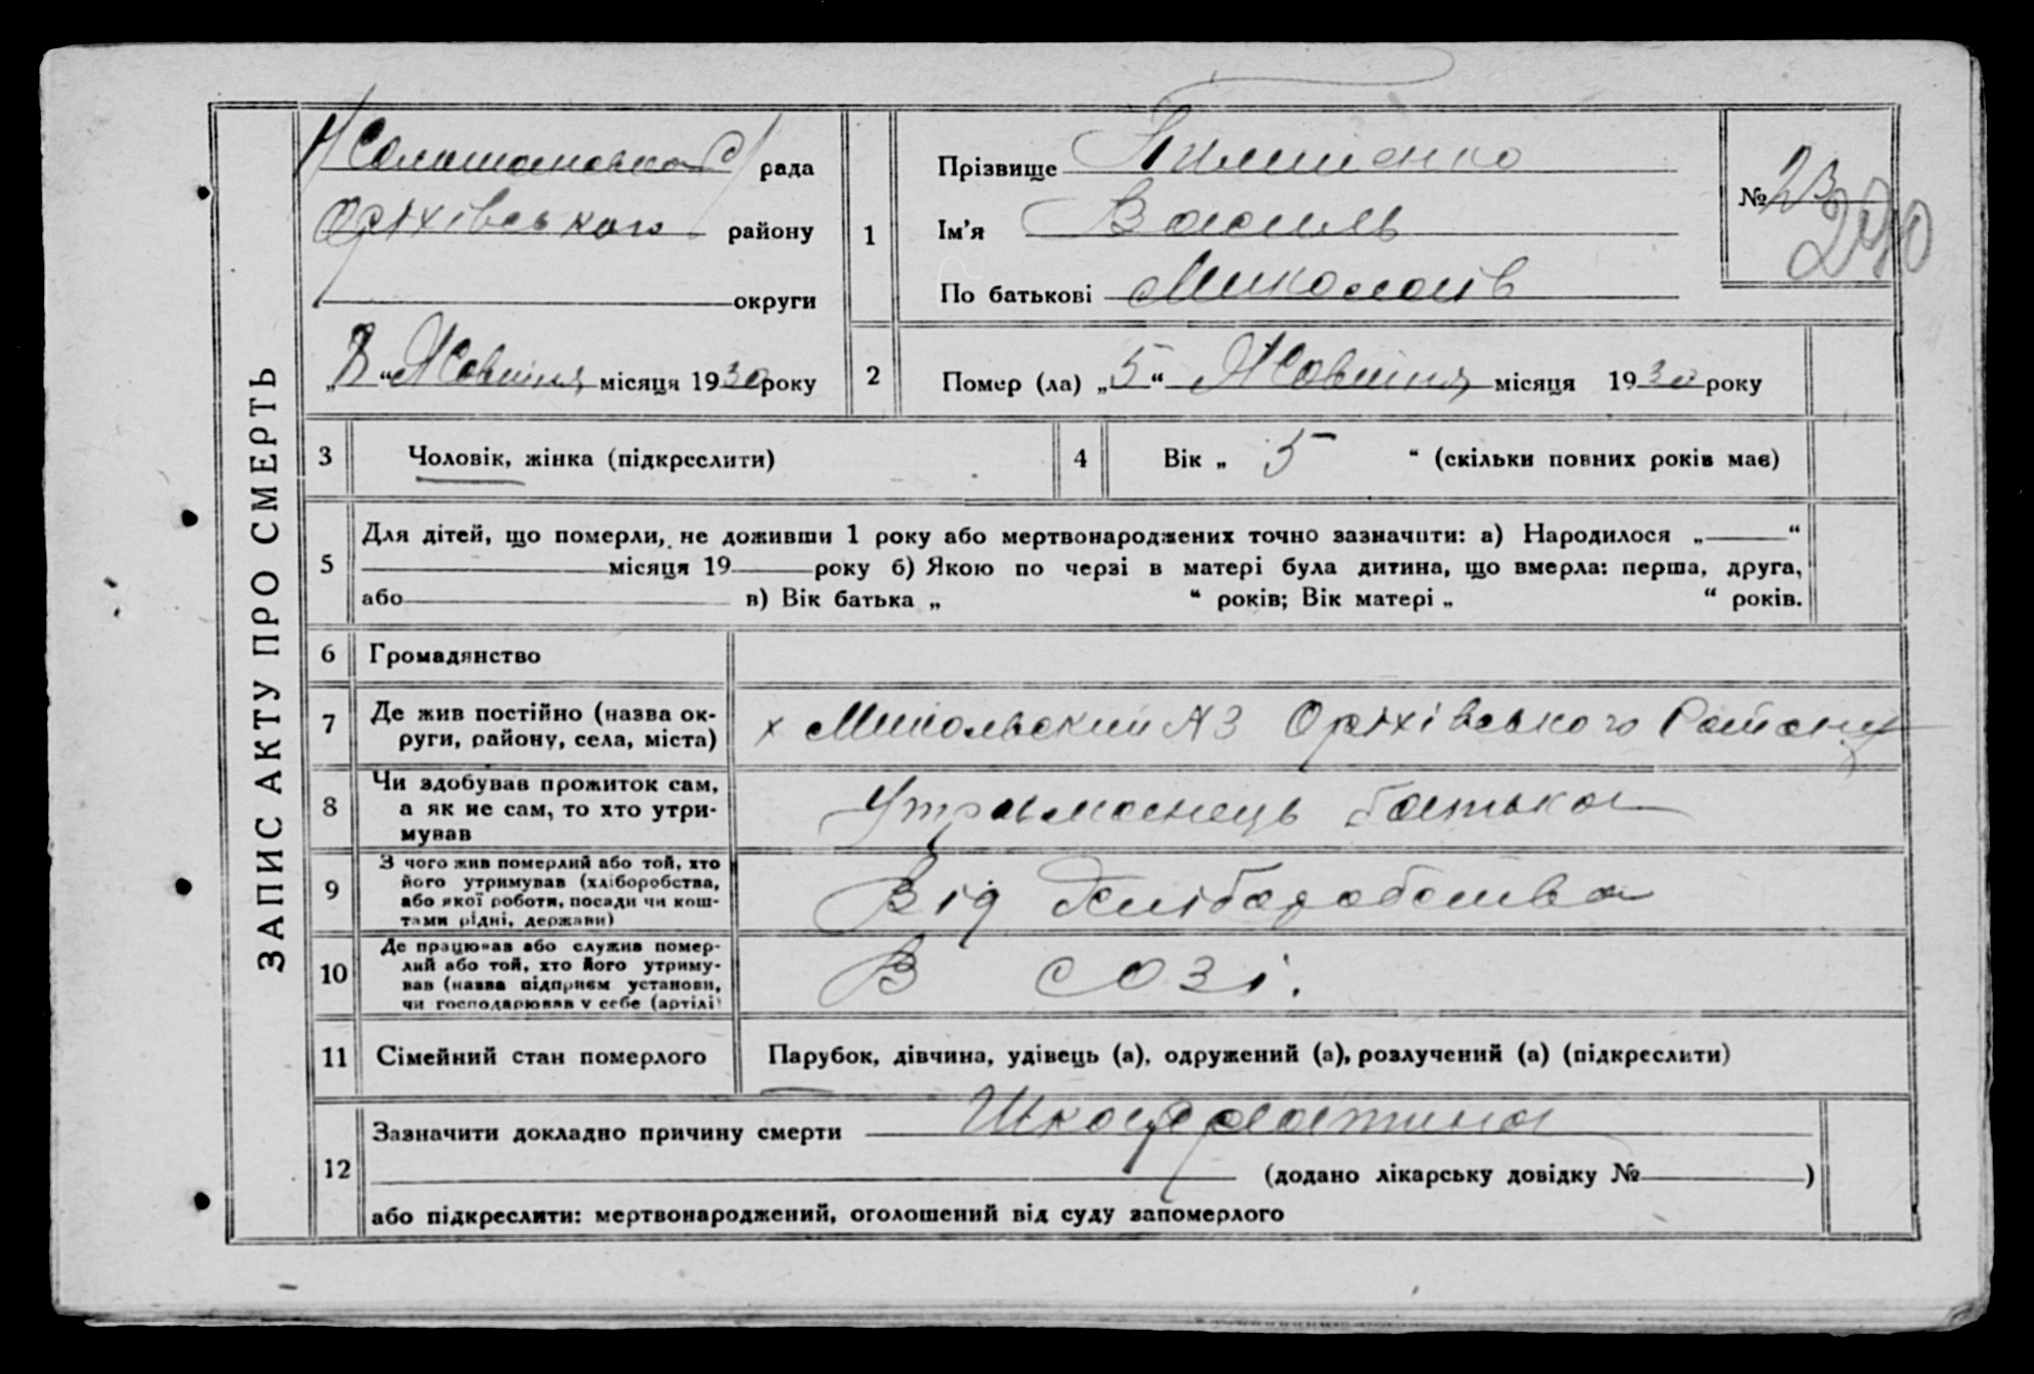 ЗАПИС АКТУ ПРО СМЕРТЬ
рада
Оріхівського району
округи
„8“ Жовтня місяця 1930 року
1
Прізвище Пилипенко
Ім’я Василь
По батькові Миколаїв
№ 23
240
2
Помер (ла) „5“ Жовтня місяця 1930 року
3 Чоловік, жінка (підкреслити)
4 Вік „ 5 “ (скільки повних років має)
5
Для дітей, що померли, не доживши 1 року або мертвонароджених точно зазначити: а) Народилося „ “
місяця 19 року б) Якою по черзі в матері була дитина, що вмерла: перша, друга,
або в) Вік батька „ “ років; Вік матері „ “ років.
6 Громадянство
7 Де жив постійно (назва ок-
руги, району, села, міста)
х Микольский №3 Оріхівського Району
8 Чи здобував прожиток сам,
а як не сам, то хто утри-
мував
Утриманець батька
9 З чого жив померлий або той, хто
його утримував (хліборобства,
або якої роботи, посади чи кош-
тами рідні, держави)
Від Хліборобства
10 Де працював або служив помер-
лий або той, хто його утриму-
вав (назва підприєм установи,
чи господарював у себе (артілі)
В СОЗі.
11 Сімейний стан померлого
Парубок, дівчина, удівець (а), одружений (а), розлучений (а) (підкреслити)
12
Зазначити докладно причину смерти Шкарлатина
(додано лікарську довідку № )
або підкреслити: мертвонароджений, оголошений від суду запомерлого